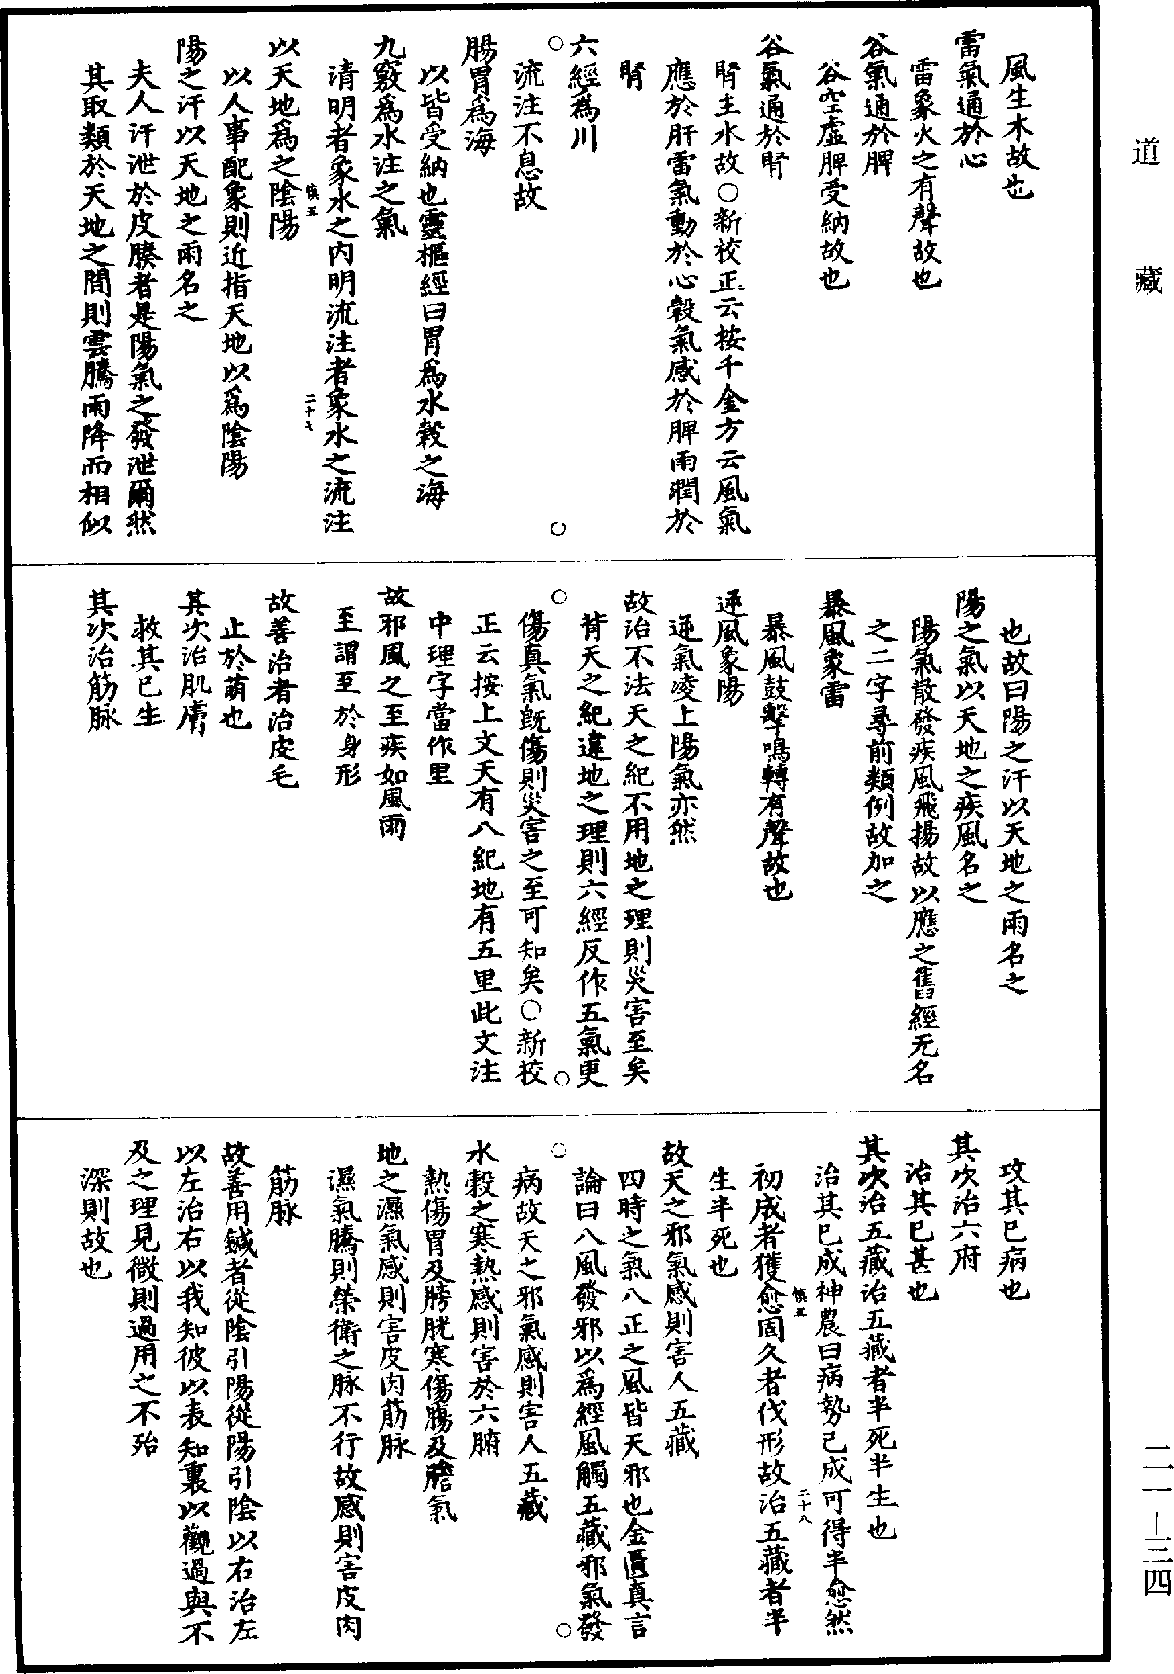 道藏
風生木故也
雷氣通於心
雷象火之有聲故也
谷氣通於脾
谷空虛脾受納故也
谷氣通於腎
腎主水故○新校正云按千金方云風氣
應於肝雷氣動於心穀氣感於脾雨潤於
腎
六經為川
○　○
流注不息故
腸胃爲海
以皆受納也靈樞經曰胃爲水穀之海
九竅爲水注之氣
清明者象水之内明流注者象水之流注
慎五　二十七
以天地爲之陰陽
以人事配象則近指天地以爲陰陽
陽之汗以天地之雨名之
夫人汗泄於皮腠者是陽氣之發泄爾然
其取類於天地之間則雲騰雨降而相似
也故曰陽之汗以天地之雨名之
陽之氣以天地之疾風名之
陽氣散發疾風飛揚故以應之舊經无名
之二字尋前類例故加之
暴風象雷
暴風鼓擊鳴轉有聲故也
逆風象陽
逆氣凌上陽氣亦然
故治不法天之紀不用地之理則災害至矣
背天之紀違地之理則六經反作五氣更
○　○
傷真氣既傷則災害之至可知矣○新校
正云按上文天有八紀地有五里此文注
中理字當作里
故邪風之至疾如風雨
至謂至於身形
故善治者治皮毛
止於萌也
其次治肌膚
救其已生
其次治筋脉
攻其已病也
其次治六府
治其已甚也
其次治五藏治五藏者半死半生也
治其已成神農曰病勢已成可得半愈然
慎五　二十八
初成者獲愈固久者伐形故治五藏者半
生半死也
故天之邪氣感則害人五藏
四時之氣八正之風皆天邪也金匱真言
論曰八風發邪以爲經風觸五藏邪氣發
○　○
病故天之邪氣感則害人五藏
水穀之寒熱感則害於六腑
熱傷胃及膀胱寒傷腸及膽氣
地之濕氣感則害皮肉筋脉
濕氣騰則榮衛之脉不行故感則害皮肉
筋脉
故善用鍼者從陰引陽從陽引陰以右治左
以左治右以我知彼以表知裏以觀過與不
及之理見微則過用之不殆
深則故也
二一—三四